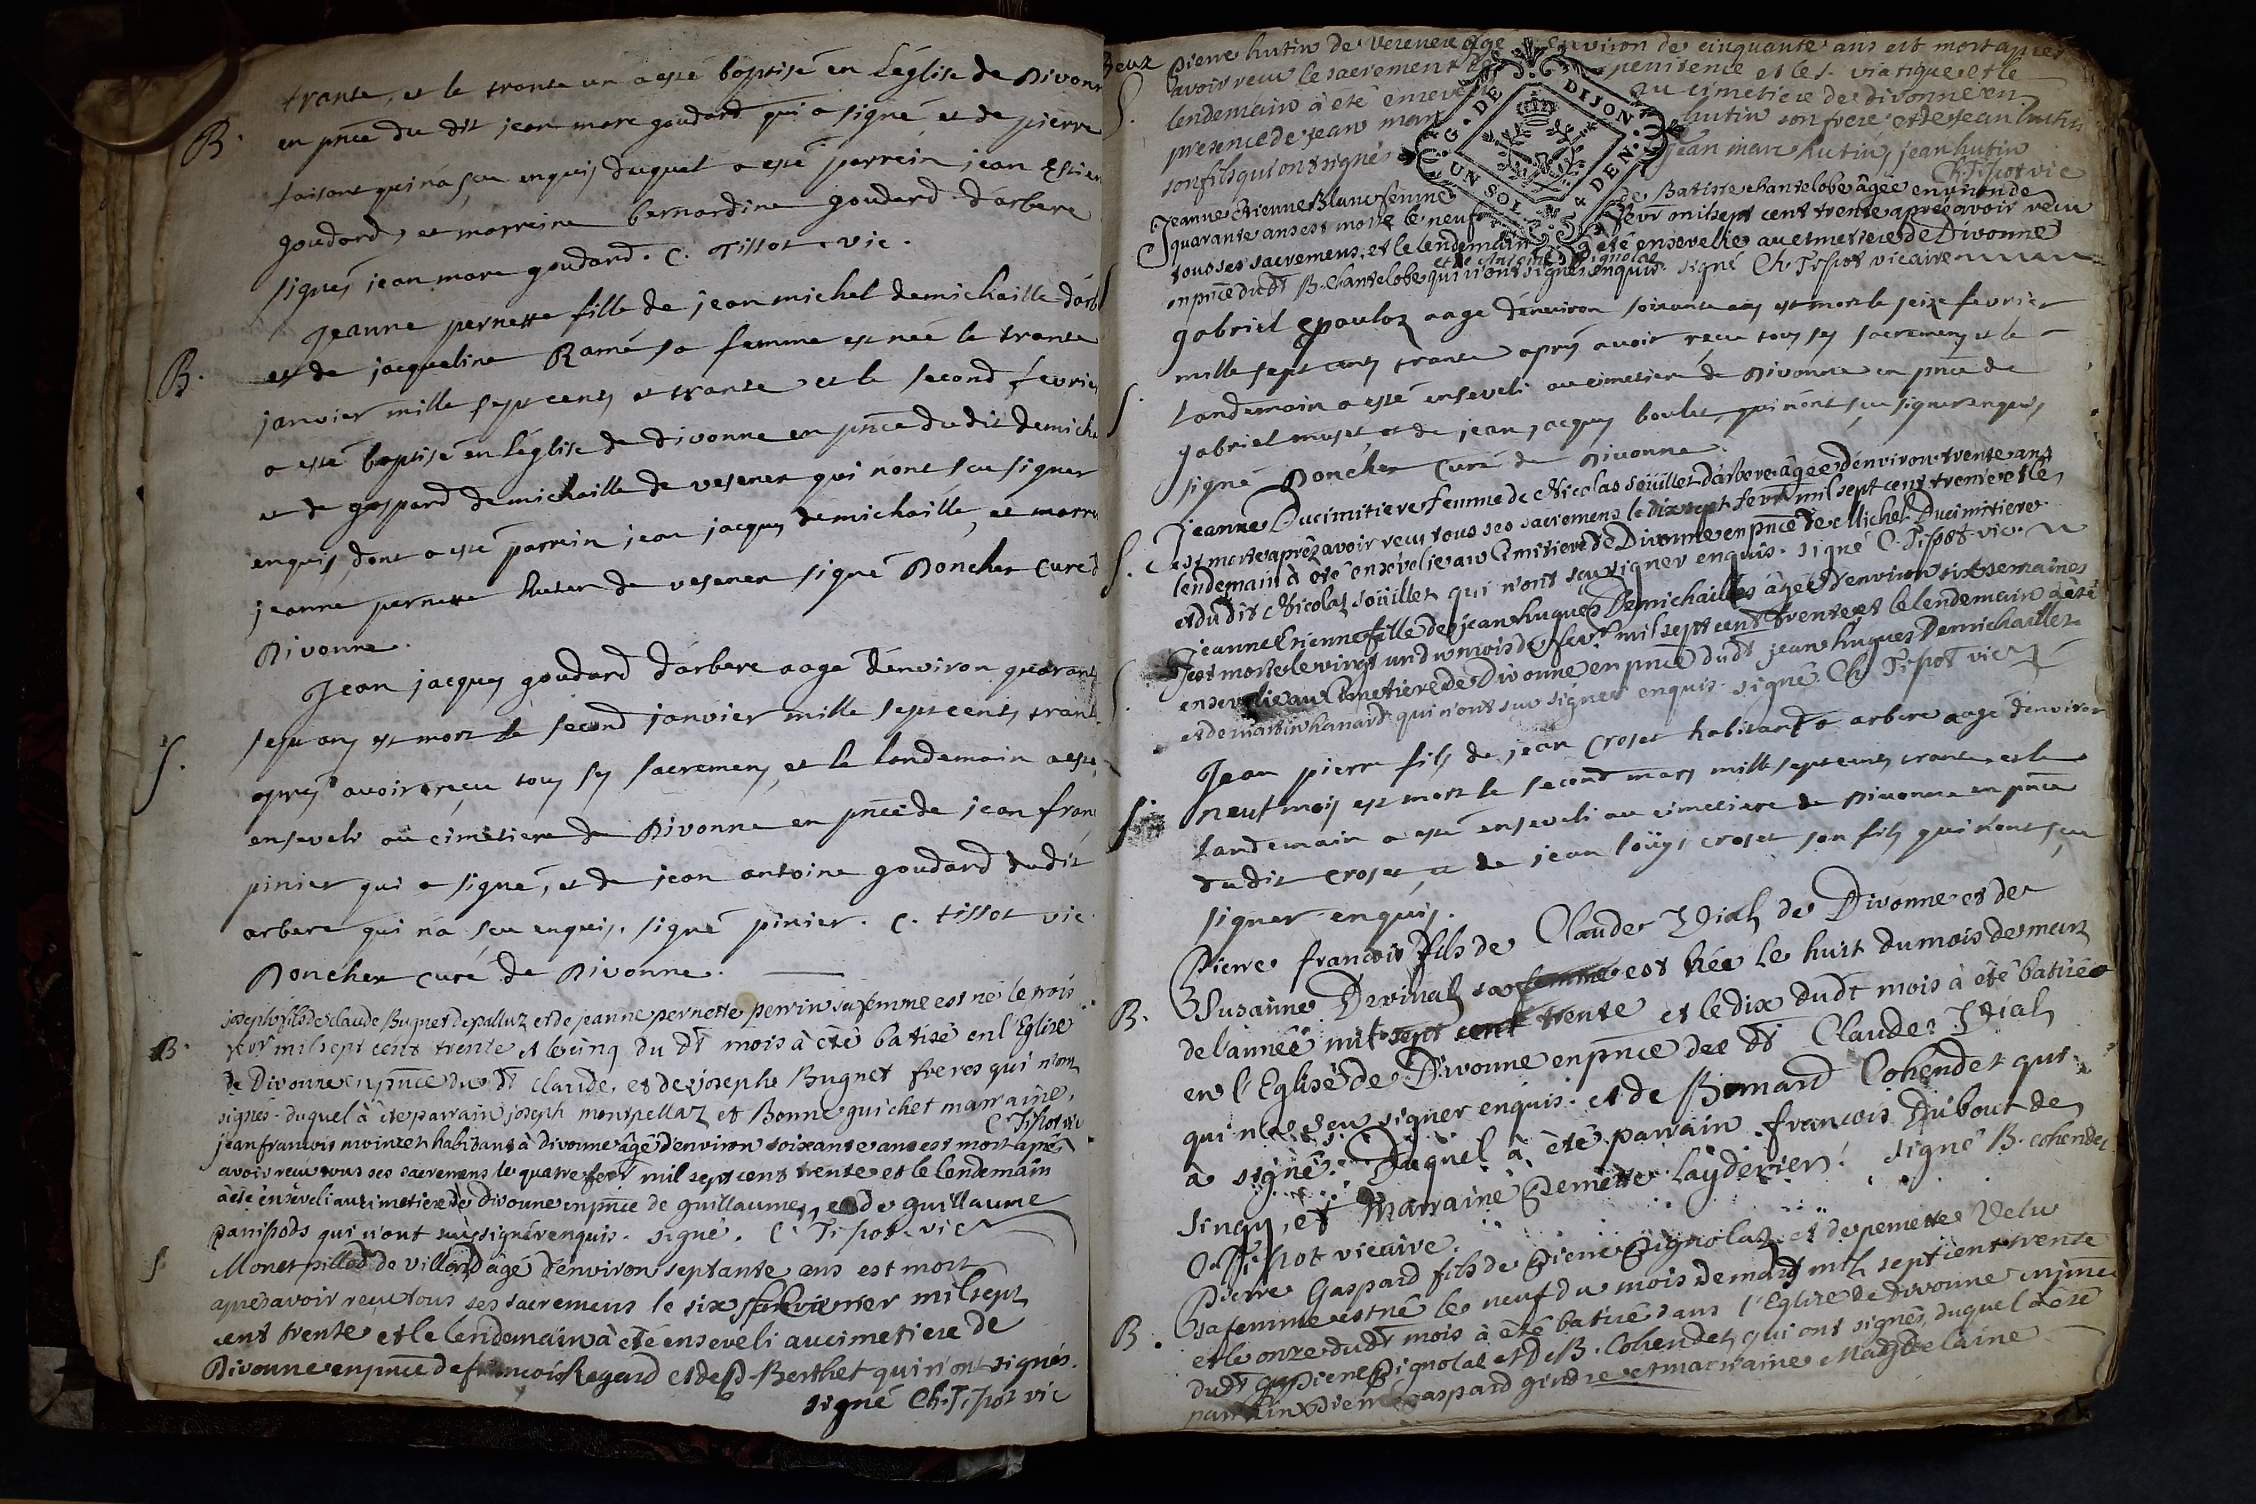 trante, et le trante un a esté baptisé en L'église de Divonn
B. en pnce du dit jean marc goudard qui a signé et de pierre
taisant qui n'a sçu enquis duquel a esté parrein jean Estien
goudard, et marreine bernardine goudard d'arbere
signés jean marc goudard. C. Tissot. vic.
Jeanne pernette fille de jean michel demichaille d'arb
B. et de jacqueline Ramé sa femme est née le trante
janvier mille sept cents et trante et le second fevrier
a esté baptisé en L'église de divonne en pnce du dit demicha
et de gaspard demichaille de vesenex qui n'ont sçu signer
enquis, dont a esté parrein jean jacques demichaille, et marre
jeanne pernette huten de vesenex signé Doncher curé d
Divonne.
Jean jacques goudard d'arbere aagé d'environ quarante
sept ans est mort le second janvier mille sept cents trant
S. après avoir reçeu tous ses sacremens, et le landemain a esté
enseveli au cimetiere de Divonne en pnce de jean fran
pinier qui a signé, et de jean antoine goudard dudit
arbere qui n'a sçu enquis. signé pinier. C. tissot vic.
Doncher curé de Divonne.
joseph fils de claude Bugnet de palluz et de jeanne pernette perrin sa femme est né le trois
B. fevr mil sept cent trente et le cinq du dt mois à été batisé en l'Eglise
de Divonne en pnce du dt claude, et de joseph Bugnet freres qui n'ont
signés. duquel à été parrain joseph montpellaz et Bonne guichet marraine.
C. Tissot vic
jean francois mointet habitant à divonne âgé d'environ soixante ans est mort après
avoir reçu tous ses sacremens le quatre fevr mil sept cent trente et le lendemain
à été enséveli au cimetiere de divonne en pnce de guillaume, et de guillaume
panissods qui n'ont sçu signér enquis. signé. C. Tissot vic
S Monet pillod de villard âgé d'environ septante ans est mort
apres avoir reçu tous ses sacremens le six fevrier mil sept
cent trente et le lendemain à été enseveli au cimetiere de
Divonne en pnce de francois Regard et de p. Berthet qui n'ont signés.
signé Ch. Tissot vic
Deux
Pierre hutin de vesenex âgé environ de cinquante ans est mort après
S. avoir reçu le sacrement de penitence et le s. viatique et le
lendemain à été enseveli au cimetiere de divonne en
presence de jean marc hutin son frere et de jean hutin
son fils qui ont signés jean marc hutin, jean hutin
Ch. Tissot vic
G. DE DIJON
UN SOL 4 DEN.
Jeanne Etienne Blanc femme de Batiste chantelobe âgée environ de
quarante ans est morte le neuf fevr mil sept cent trente après avoir reçu
S tous ses sacremens, et le lendemain à été ensevelie au cimetiere de Divonne
et de Antoine Pignolas
en pnce du dt B. Chantelobe qui n'ont signés enquis. signé Ch. Tissot vicaire
gabriel epaulaz aagé d'environ soixante ans est mort le seize fevrier
mille sept cents trante après avoir reçeu tous ses sacremens et le
S. landemain a esté enseveli au cimetiere de Divonne en pnce de
gabriel muset, et de jean jacques boulet, qui n'ont sçu signer enquis
signé Doncher curé de Divonne.
jeanne Ducimitiere femme de Nicolas Soüillet d'arbere âgée d'environ trente ans
S. est morte après avoir reçu tous ses sacremens le dix sept fevr mil sept cent trente et le
lendemain à été ensévelie au Cimitiere de Divonne en pnce de Michel Ducimitiere
et du dit Nicolas Soüillet qui n'ont sçu signer enquis. signé C. Tissot vic.
jeanne Etienne fille de jean hugues Demichailles âgée d'environ six semaines
est morte le vingt un du mois de fevr mil sept cent trente et le lendemain à été
S. ensevelie au Cimetiere de Divonne en pnce du dt jean hugues Demichailles
et de martin hanard qui n'ont sçu signer enquis. signé Ch. Tissot vic
Jean pierre fils de jean Croset habitant a arbere aagé d'environ
S. neuf mois est mort le second mars mille sept cents trante et le
landemain a esté enseveli au cimetiere de Divonne en pnce
du dit Croset, et de jean loüys croset son fils qui n'ont sçu
signer enquis.
Pierre francois fils de Claude Vial de Divonne et de
Susanne Devinal sa femme est née le huit du mois de mars
B. de l'année mil sept cent trente et le dix dudt mois à été batisée
en l'Eglise de Divonne en pnce dee dt Claude Vial
qui n'as sçu signer enquis. et de Bernard Cohendet qui
à signé. Duquel à été parrain francois Dubout de
Sinay, et Marraine Pernette Layderier. signé B. cohendet
C. Tissot vicaire.
Pierre Gaspard fils de Pierre Pignolas et de pernette Velu
sa femme est né le neuf du mois de mars mil sept cent trente
B. et le onze du dt mois à été batisé dans l'Eglise de divonne en pnce
du dt Pierre Pignolas et De B. Cohendet, qui ont signés, duquel à été
parrain Pierre gaspard gindre et marraine Magdelaine